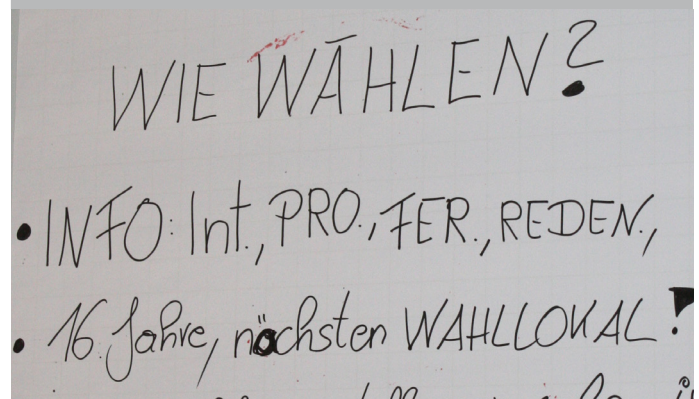 WIE WÄHLEN?
• INFO: Int., PRO., FER., REDEN.,
• 16 Jahre, nächsten WAHLLOKAL!